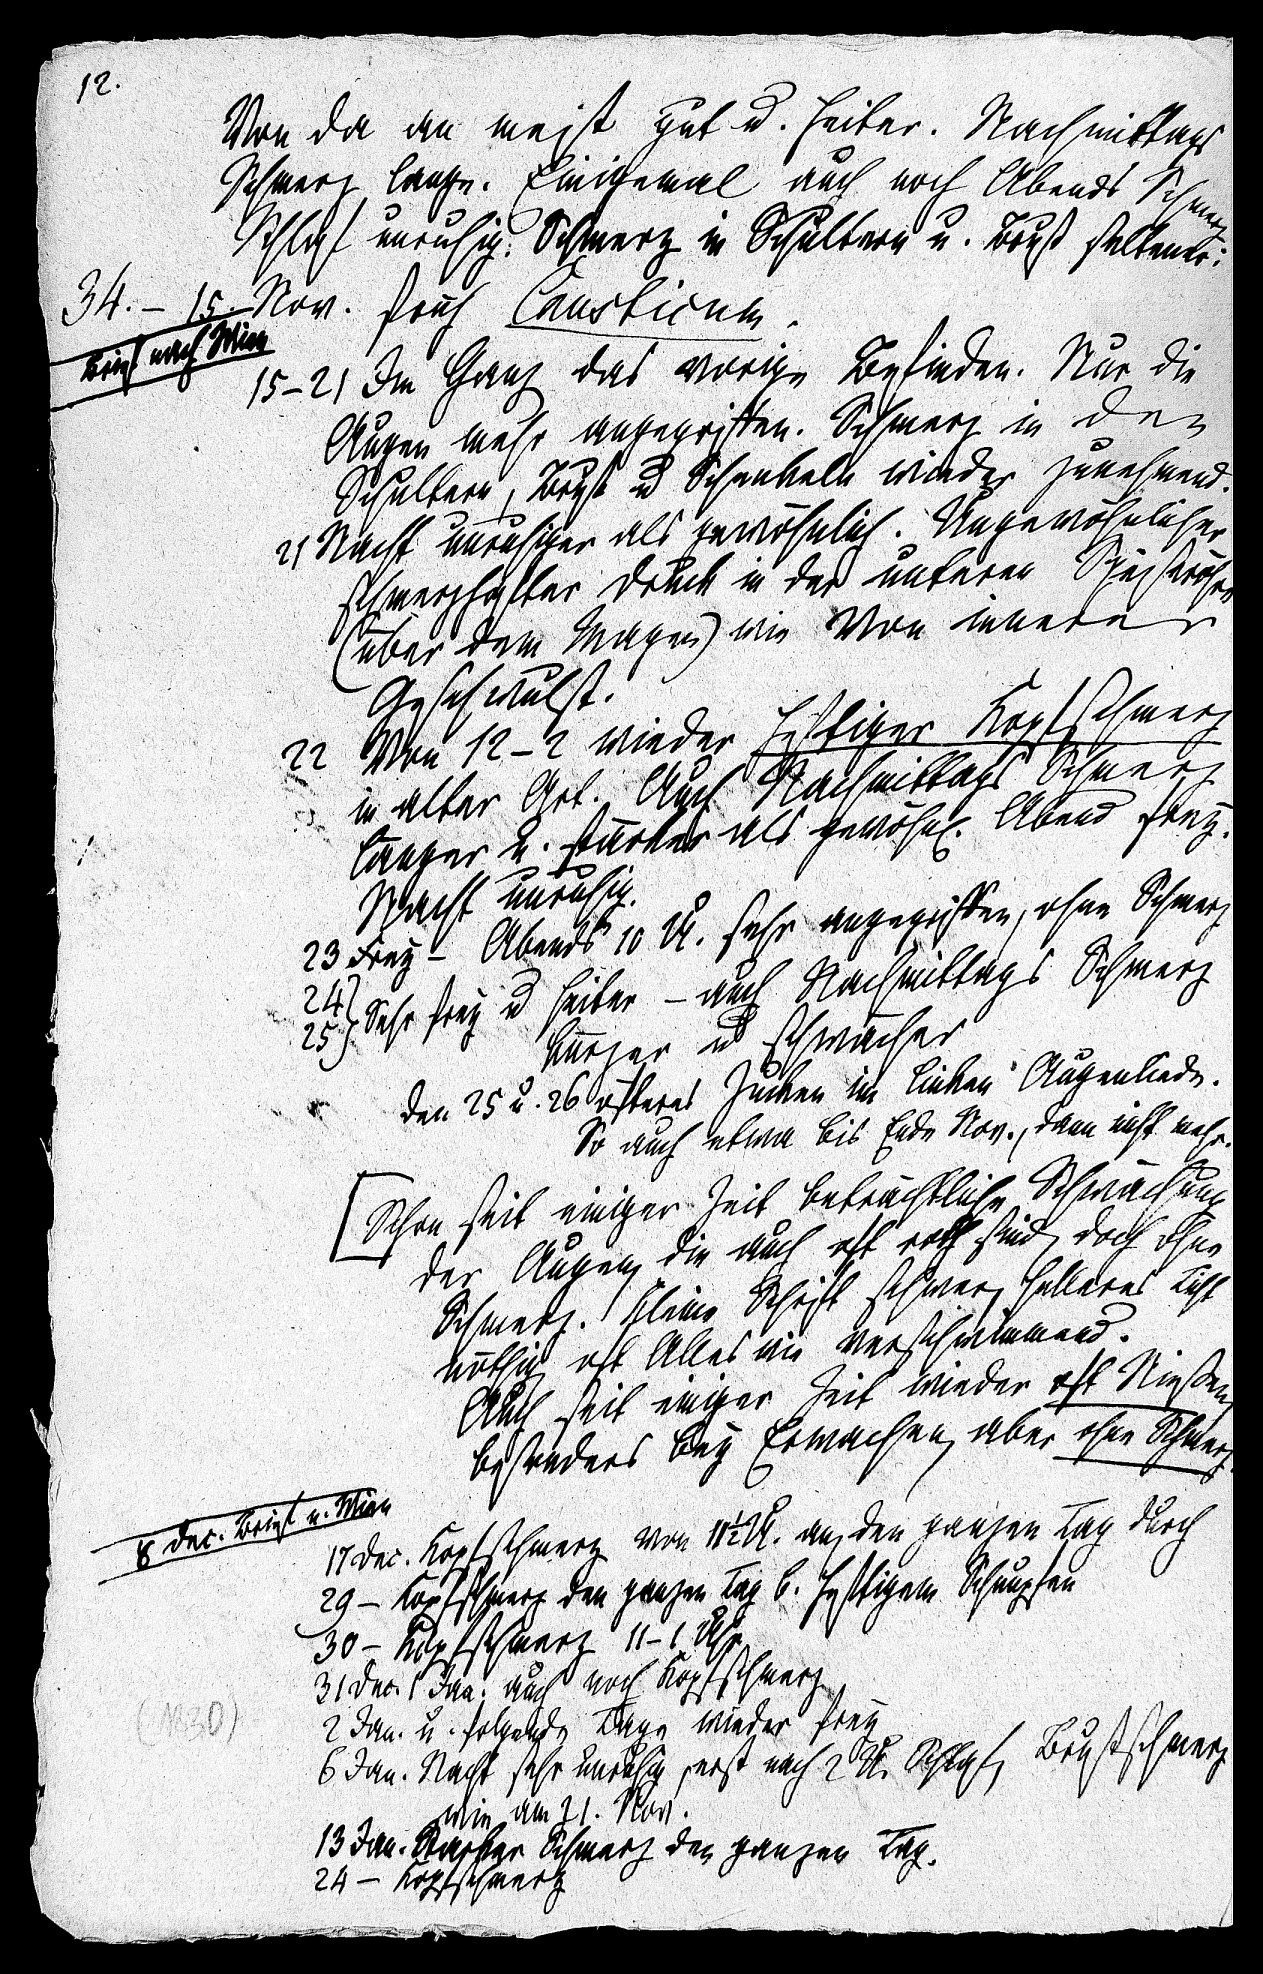 12.
Von da an meist gut u. heiter. Nachmittags
Schmerz lange. Einigemal auch noch Abends Schmerz
Schlaf unruhig. Schmerz in Schultern u. Brust seltener.
34. – 15. Nov. früh Causticum.
Brief nach Wien
15–21 Im Ganz das vorige Befinden. Nur die
Augen mehr angegriffen. Schmerz in den
Schultern, Brust u Schenkeln wieder zunehmend.
21 Nacht unruhiger als gewöhnlich. Ungewöhnlicher
schmerzhafter Druck in der unteren Speiseröhre
(über dem Magen) wie von innerer
Geschwulst.
22 Von 12–2 wieder heftiger Kopfschmerz
in alter Art. Auch Nachmittags Schmerz
länger u. stärker als gewöhnl. Abend frey.
Nacht unruhig.
23 Frey – Abends 10 U. sehr angegriffen, ohne Schmerz
24}
25} Sehr frey u heiter – auch Nachmittags Schmerz
kürzer u schwächer
den 25 u. 26 öfteres Zucken im linken Augenliede.
So auch etwa bis Ende Nov., dann nicht mehr.
[Schon seit einiger Zeit beträchtliche Schwächung
der Augen, die auch oft roth sind, doch ohne
Schmerz. Kleine Schrift schwer, helleres Licht
nöthig, oft Alles wie verschwimmend.
Auch seit einiger Zeit wieder oft Niesen,
besonders bey Erwachen, aber ohne Schmerz.
8 Dec. Brief n. Wien
17 Dec. Kopfschmerz von 11½ U. an, den ganzen Tag durch
29 – Kopfschmerz den ganzen Tag b. heftigem Schnupfen
30 – Kopfschmerz 11–1 Uhr
31 Dec. 1 Jan. auch noch Kopfschmerz
(1830)
2 Jan. u. folgende Tage wieder frey
6 Jan. Nacht sehr unruhig, erst nach 2 U. Schlaf, Brustschmerz
wie am 21. Nov.
13 Jan. Starker Schmerz den ganzen Tag.
24 – Kopfschmerz